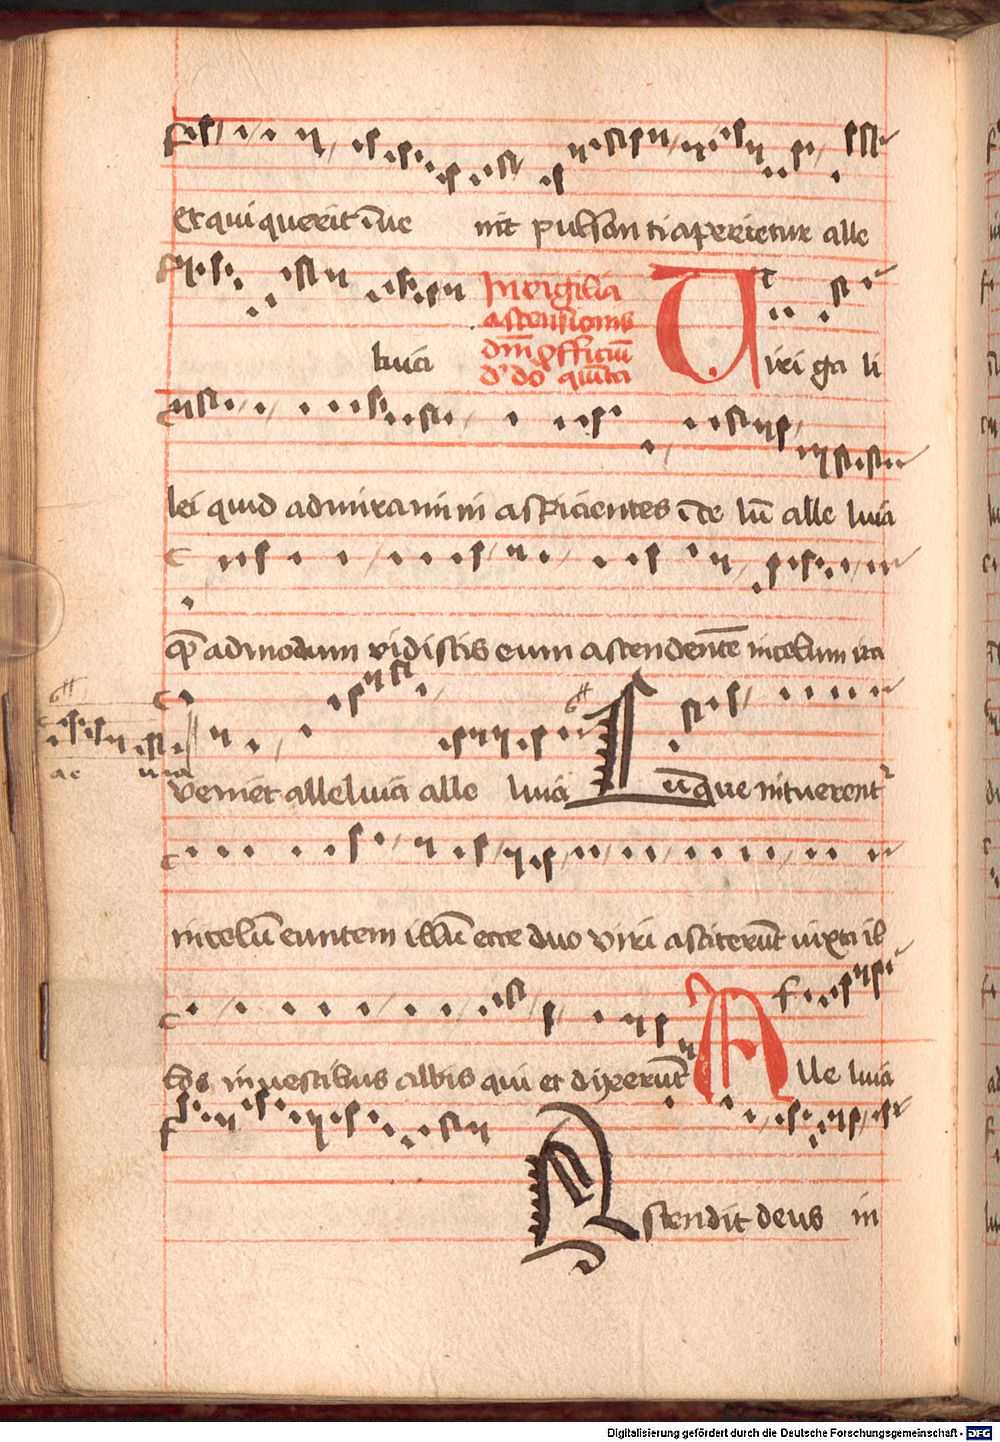 et qui querit īue nit pulsanti aperietur alle
luia In vigilia
ascensionis
dn̄i officiū
de do quinta
Uiri ga li
lei quid admiramini aspicientes ī ce lū alle luia
qē admodum vidistis eum ascendentē in celum ita
ae uia
veniet alleluia alle luia Cūque intuerent
in celū euntem illū ecce duo viri astiterūt iuxta il
los in vestibus albis qui et dixerūt Alle luia
Ascendit deus in
Digitalisierung gefördert durch die Deutsche Forschungsgemeinschaft - DFG